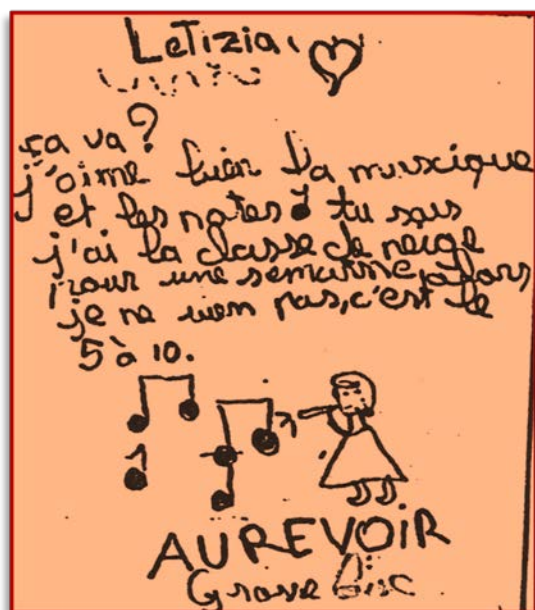 Letizia,
ça va?
j'aime bien la muxique
et les notes tu sais
j'ai la classe de neige
pour une semaine, alors
je ne vien pas, c'est le
5 à 10.
AUREVOIR
Grosse